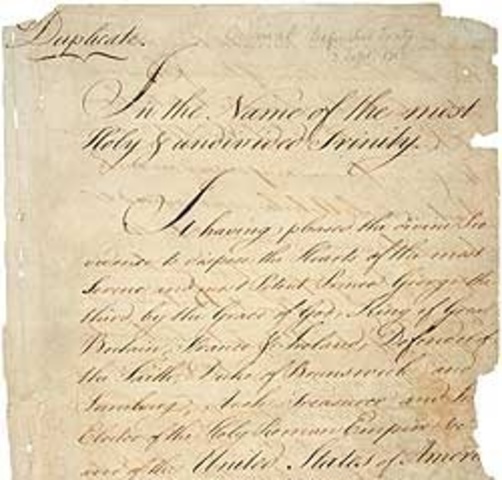 Duplicate.
Original Definitive Treaty
3 Sept.
In the Name of the most
Holy & undivided Trinity.
It having pleased the divine Pro
vidence to dispose the Hearts of the most
Serene and most Potent Prince George the
third, by the Grace of God, King of Great
Britain, France & Ireland, Defender of
the Faith, Duke of Brunswick and
Lunebourg, Arch Treasurer and
Elector of the Holy Roman Empire &c
and of the United States of Ameri